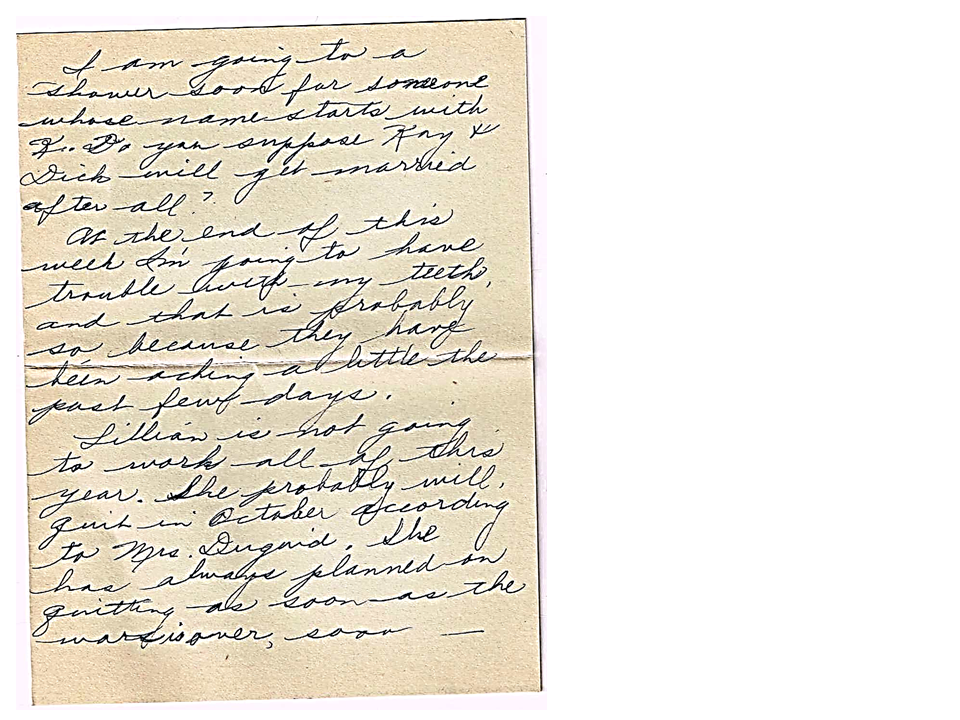 I am going to a
shower soon for someone
whose name starts with
K. Do you suppose Kay &
Dick will get married
after all?
At the end of this
week I'm going to have
trouble with my teeth,
and that is probably
so because they have
been aching a little the
past few days.
Lillian is not going
to work all of this
year. She probably will,
quit in October according
to Mrs. Duguid. She
has always planned on
quitting as soon as the
war is over, sooo —